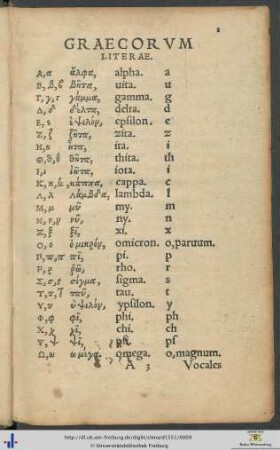 GRAECORVM
LITERAE.
Α, α ἄλφα, alpha. a
Β, β, ϐ βῆτα, uita. u
Γ, γ, γάμμα, gamma. g
Δ, δ δέλτα, delta. d
Ε, ε ἐψιλόν, epsilon. e
Ζ, ζ ζῆτα, zita. z
Η, η ἦτα, ita. i
Θ, θ, ϑ θῆτα, thita. th
Ι, ι ἰῶτα, iota. i
Κ, κ, κάππα, cappa. c
Λ, λ λάμβδα, lambda. l
Μ, μ μῦ my. m
Ν, ν, νῦ, ny. n
Ξ, ξ ξῖ, xi. x
Ο, ο ὀμικρόν, omicron. o, paruum.
Π, π, ϖ πῖ, pi. p
Ρ, ρ ῥῶ, rho. r
Σ, σ, ς σίγμα, sigma. s
Τ, τ, ταῦ, tau. t
Υ, υ ὐψιλόν, ypsilon. y
Φ, φ φῖ, phi. ph
Χ, χ χῖ, chi. ch
Ψ, ψ ψῖ, psi. ps
Ω, ω ὠμέγα. omega. o, magnum.
A 3 Vocales
http://dl.ub.uni-freiburg.de/diglit/clenard1551/0009
© Universitätsbibliothek Freiburg